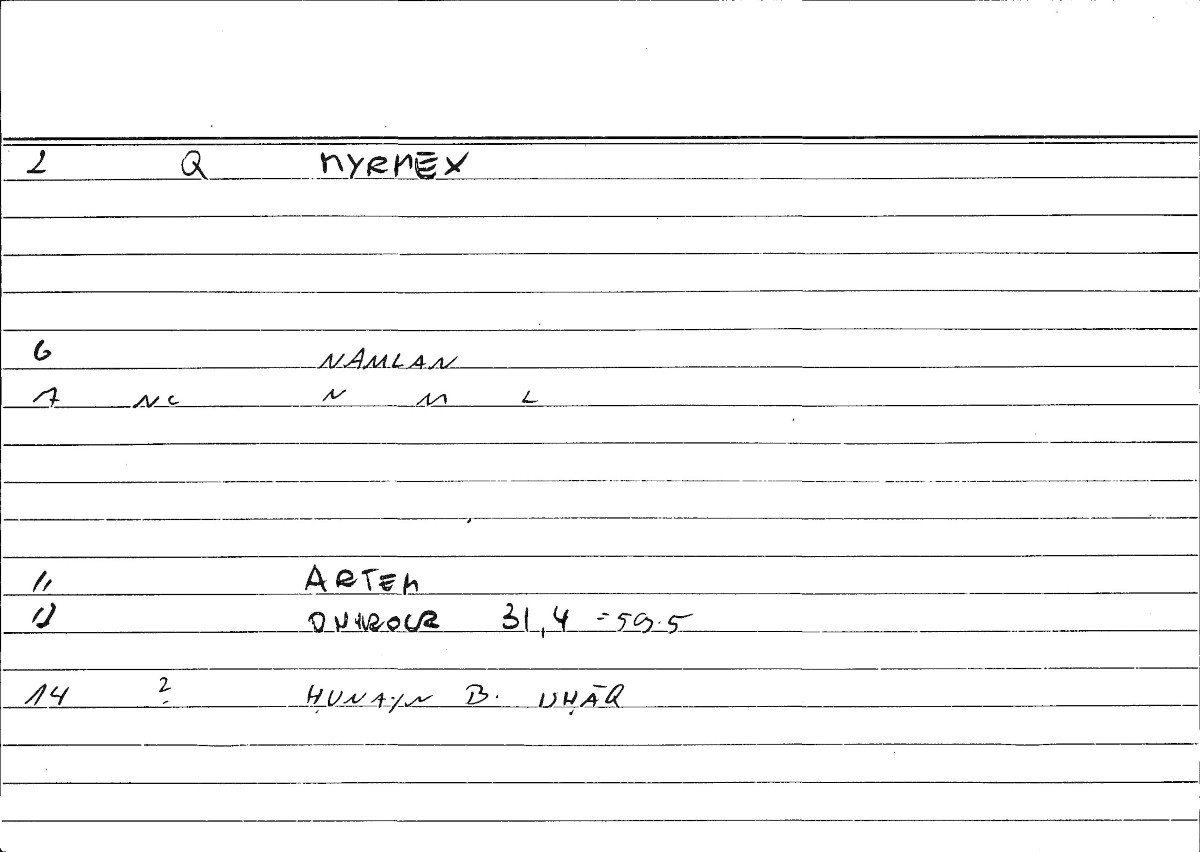 2 Q MYRMĒX
6 NAMLAN
7 NC N M L
11 ARTEM
12 ONIROCR 31,4 = 59.5
14 ? ḤUNAYN B. ISḤĀQ